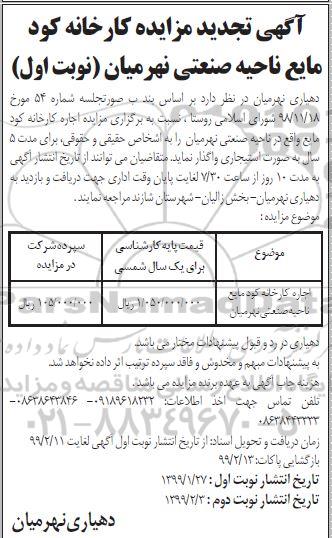 آگهی تجدید مزایده کارخانه کود
مایع ناحیه صنعتی نهرمیان (نوبت اول)
دهیاری نهرمیان در نظر دارد بر اساس بند ب صورتجلسه شماره ۵۴ مورخ
۹۸/۱۱/۱۸ شورای اسلامی روستا ، نسبت به برگزاری مزایده اجاره کارخانه کود
مایع واقع در ناحیه صنعتی نهرمیان را به اشخاص حقیقی و حقوقی، برای مدت ۵
سال به صورت استیجاری واگذار نماید. متقاضیان می توانند از تاریخ انتشار آگهی
به مدت ۱۰ روز از ساعت ۷/۳۰ لغایت پایان وقت اداری جهت دریافت و بازدید به
دهیاری نهرمیان-بخش زالیان-شهرستان شازند مراجعه نمایند.
موضوع مزایده:
موضوع
قیمت پایه کارشناسی برای یک سال شمسی
سپرده شرکت در مزایده
اجاره کارخانه کود مایع ناحیه صنعتی نهرمیان
۱/۰۵۰/۰۰۰/۰۰۰ ریال
۱۰۵/۰۰۰/۰۰۰ ریال
دهیاری در رد و قبول پیشنهادات مختار می باشد.
به پیشنهادات مبهم و مخدوش و فاقد سپرده ترتیب اثر داده نخواهد شد.
هزینه چاپ آگهی به عهده برنده مزایده می باشد.
تلفن تماس جهت اخذ اطلاعات: ۰۹۱۸۹۶۱۸۲۳۲-۰۸۶۳۸۶۴۳۸۴۶-
۰۸۶۳۸۴۴۲۲۳۳
زمان دریافت و تحویل اسناد: از تاریخ انتشار نوبت اول آگهی لغایت ۹۹/۲/۱۱
بازگشایی پاکات: ۹۹/۲/۱۳
تاریخ انتشار نوبت اول : ۱۳۹۹/۱/۲۷
تاریخ انتشار نوبت دوم : ۱۳۹۹/۲/۳
دهیاری نهرمیان
۰۲۱-۸۸۳۴۹۶۷۰-۵